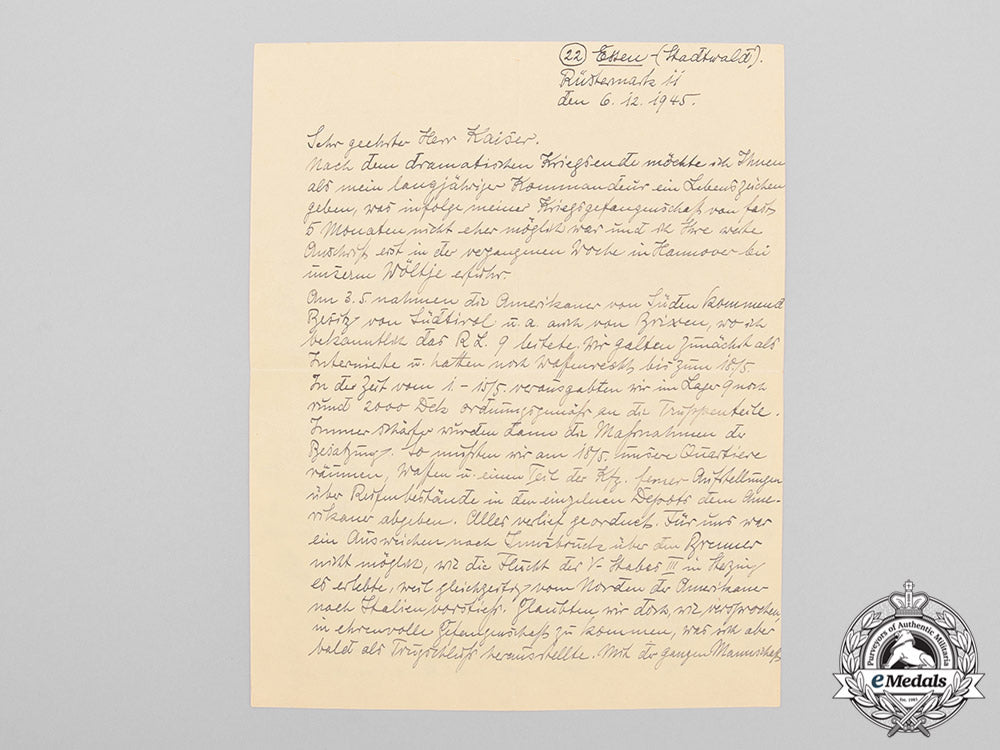 (22) Essen-(Stadtwald).
Rüstermark 11
den 6.12.1945.
Sehr geehrter Herr Kaiser.
Nach dem dramatischen Kriegsende möchte ich Ihnen
als mein langjähriger Kommandeur ein Lebenszeichen
geben, was infolge meiner Kriegsgefangenschaft von fast
5 Monaten nicht eher möglich war und ich Ihre werte
Anschrift erst in der vergangenen Woche in Hannover bei
unserm Wöltje erfuhr.
Am 3.5. nahmen die Amerikaner von Süden kommend
Besitz von Südtirol u. a. auch von Brixen, wo ich
bekanntlich das R.L. 9 leitete. Wir galten zunächst als
Internierte u. hatten noch Waffenrecht bis zum 18/5.
In der Zeit vom 1-15/5. verausgabten wir im Lager 9 noch
rund 2000 Dek ordnungsgemäß an die Truppenteile.
Immer schärfer wurden dann die Maßnahmen der
Besatzung. So mußten wir am 18/5. unsere Quartiere
räumen, Waffen u. einen Teil der Kfz. ferner Aufstellungen
über Reifenbestände in den einzelnen Depots dem Ame-
rikaner abgeben. Alles verlief geordnet. Für uns war
ein Ausweichen nach Innsbruck über den Brenner
nicht möglich, wie die Flucht des V-Stabes III in Sterzing
es erlebte, weil gleichzeitig vom Norden der Amerikaner
nach Italien vorstieß. Glaubten wir doch, wie versprochen,
in ehrenvolle Gefangenschaft zu kommen, was sich aber
bald als Trugschluß herausstellte. Mit der ganzen Mannschaft
Purveyors of Authentic Militaria
eMedals
Est. 1995